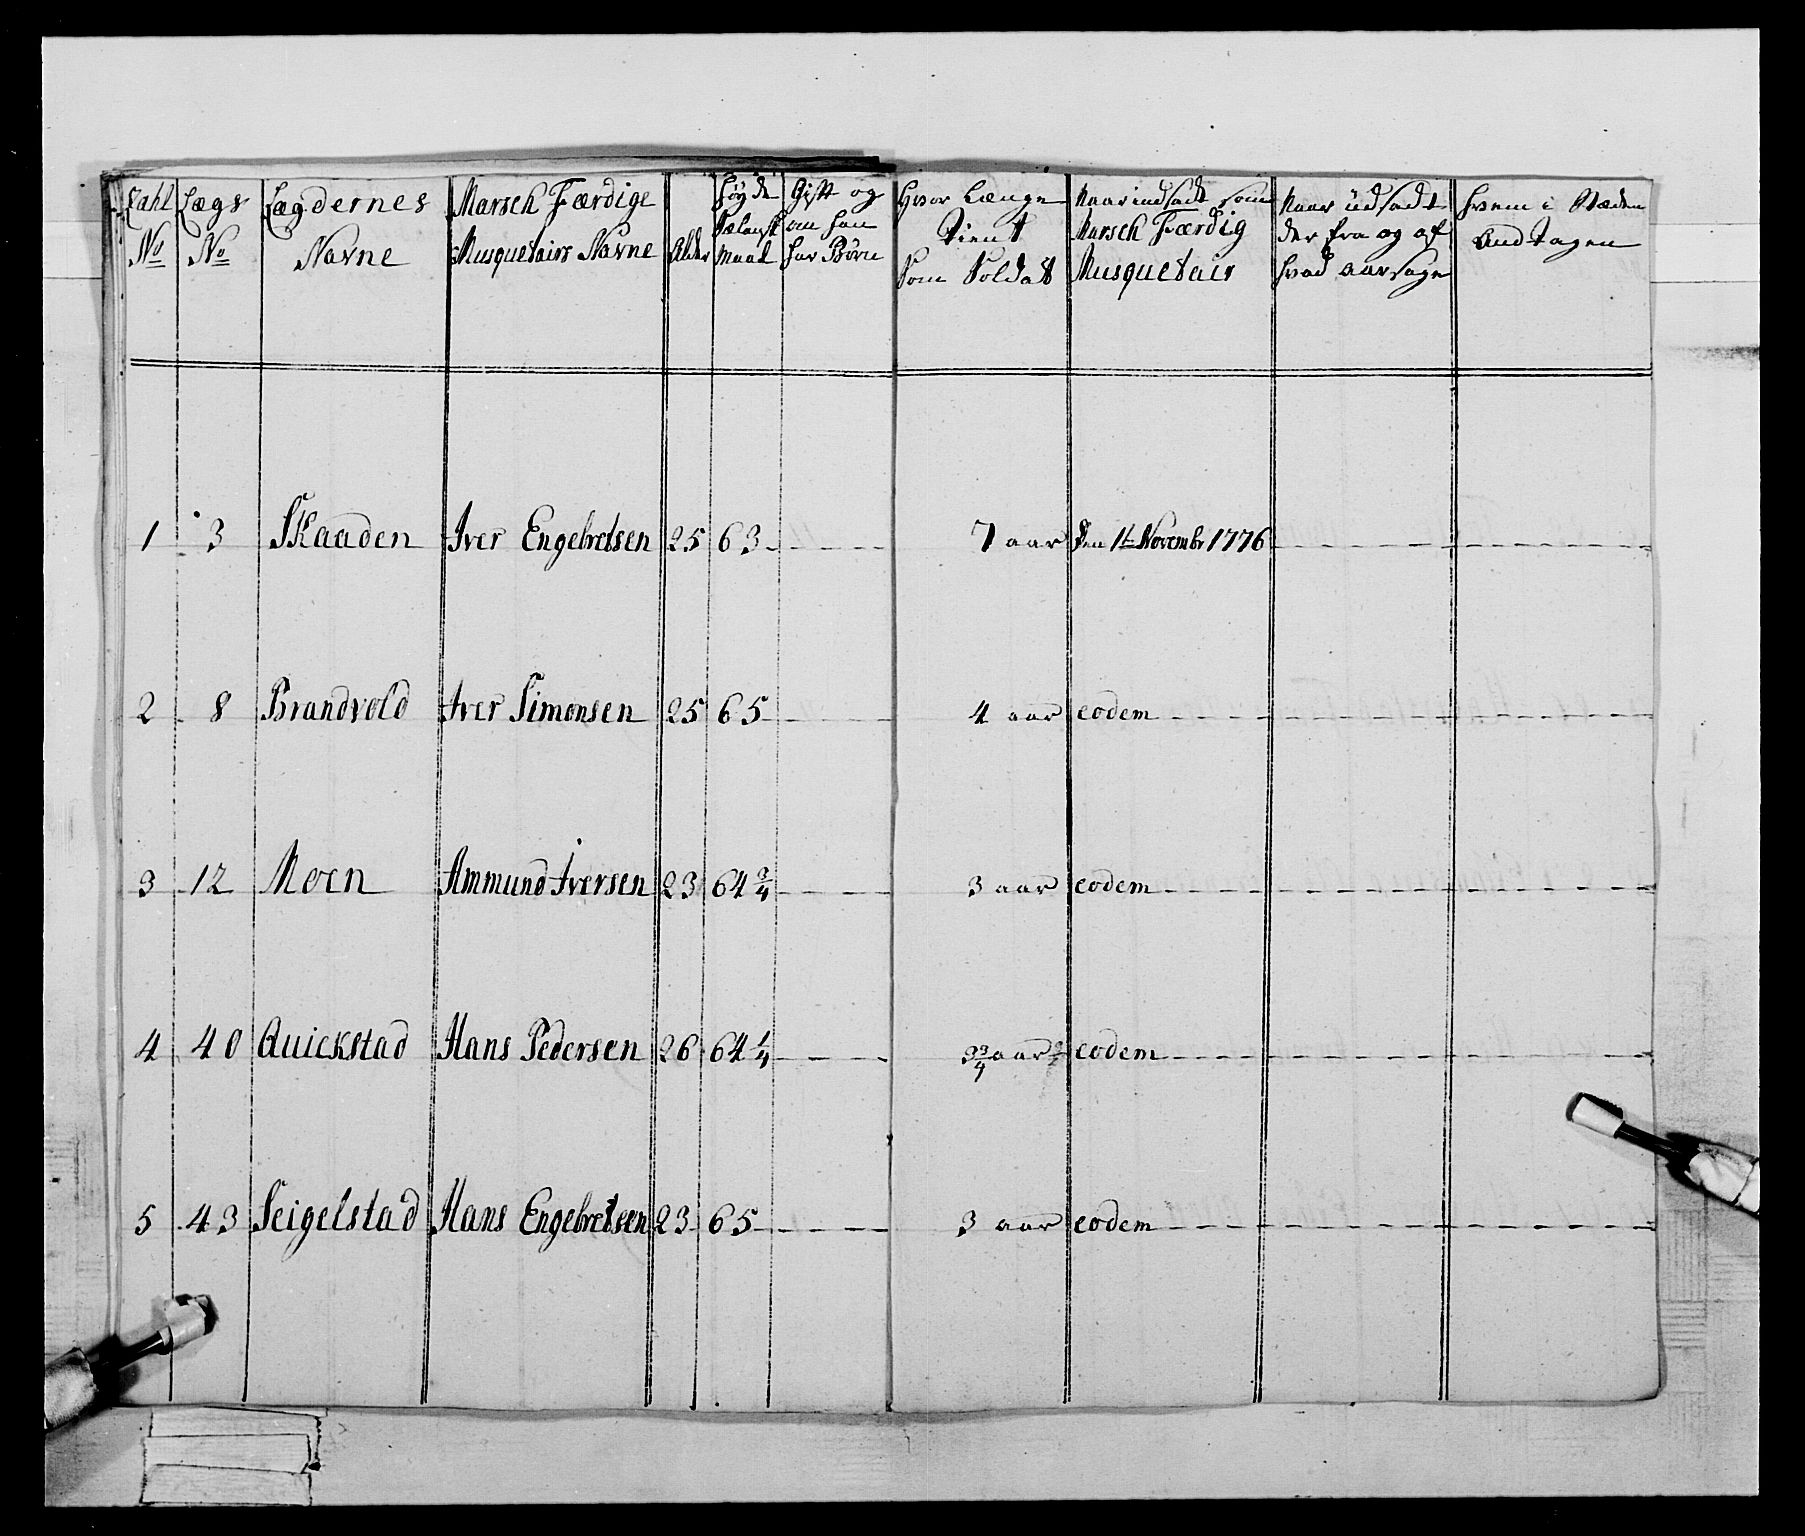 Zahl No | Lægs No | Lægdernes Navne | Marsch Færdige Musquetairs Navne | Alder | Høyde Sælansk Maal | Gift og om han har Børn | Hvor Længe tient som Soldat | Naar indsadt som Marsch Færdig Musquetair | Naar udsadt der fra og af hvad aarsage | hvem i Stæden andtagen
1 | 3 | Skaaden | Iver Engebretsen | 25 | 63 | 7 aar | Den 1t Novembr 1776
2 | 8 | Brandvold | Iver Simonsen | 25 | 65 | 4 aar | eodem
3 | 12 | Moen | Ammund Iversen | 23 | 64 3/4 | 3 aar | eodem
4 | 40 | Quickstad | Hans Pedersen | 26 | 64 1/4 | 3 3/4 aar | eodem
5 | 43 | Seigelstad | Hans Engebretsen | 23 | 65 | 3 aar | eodem